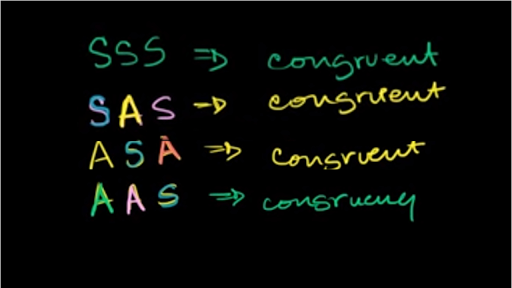 SSS => congruent
SAS -> congruent
ASA => congruent
AAS => congruency